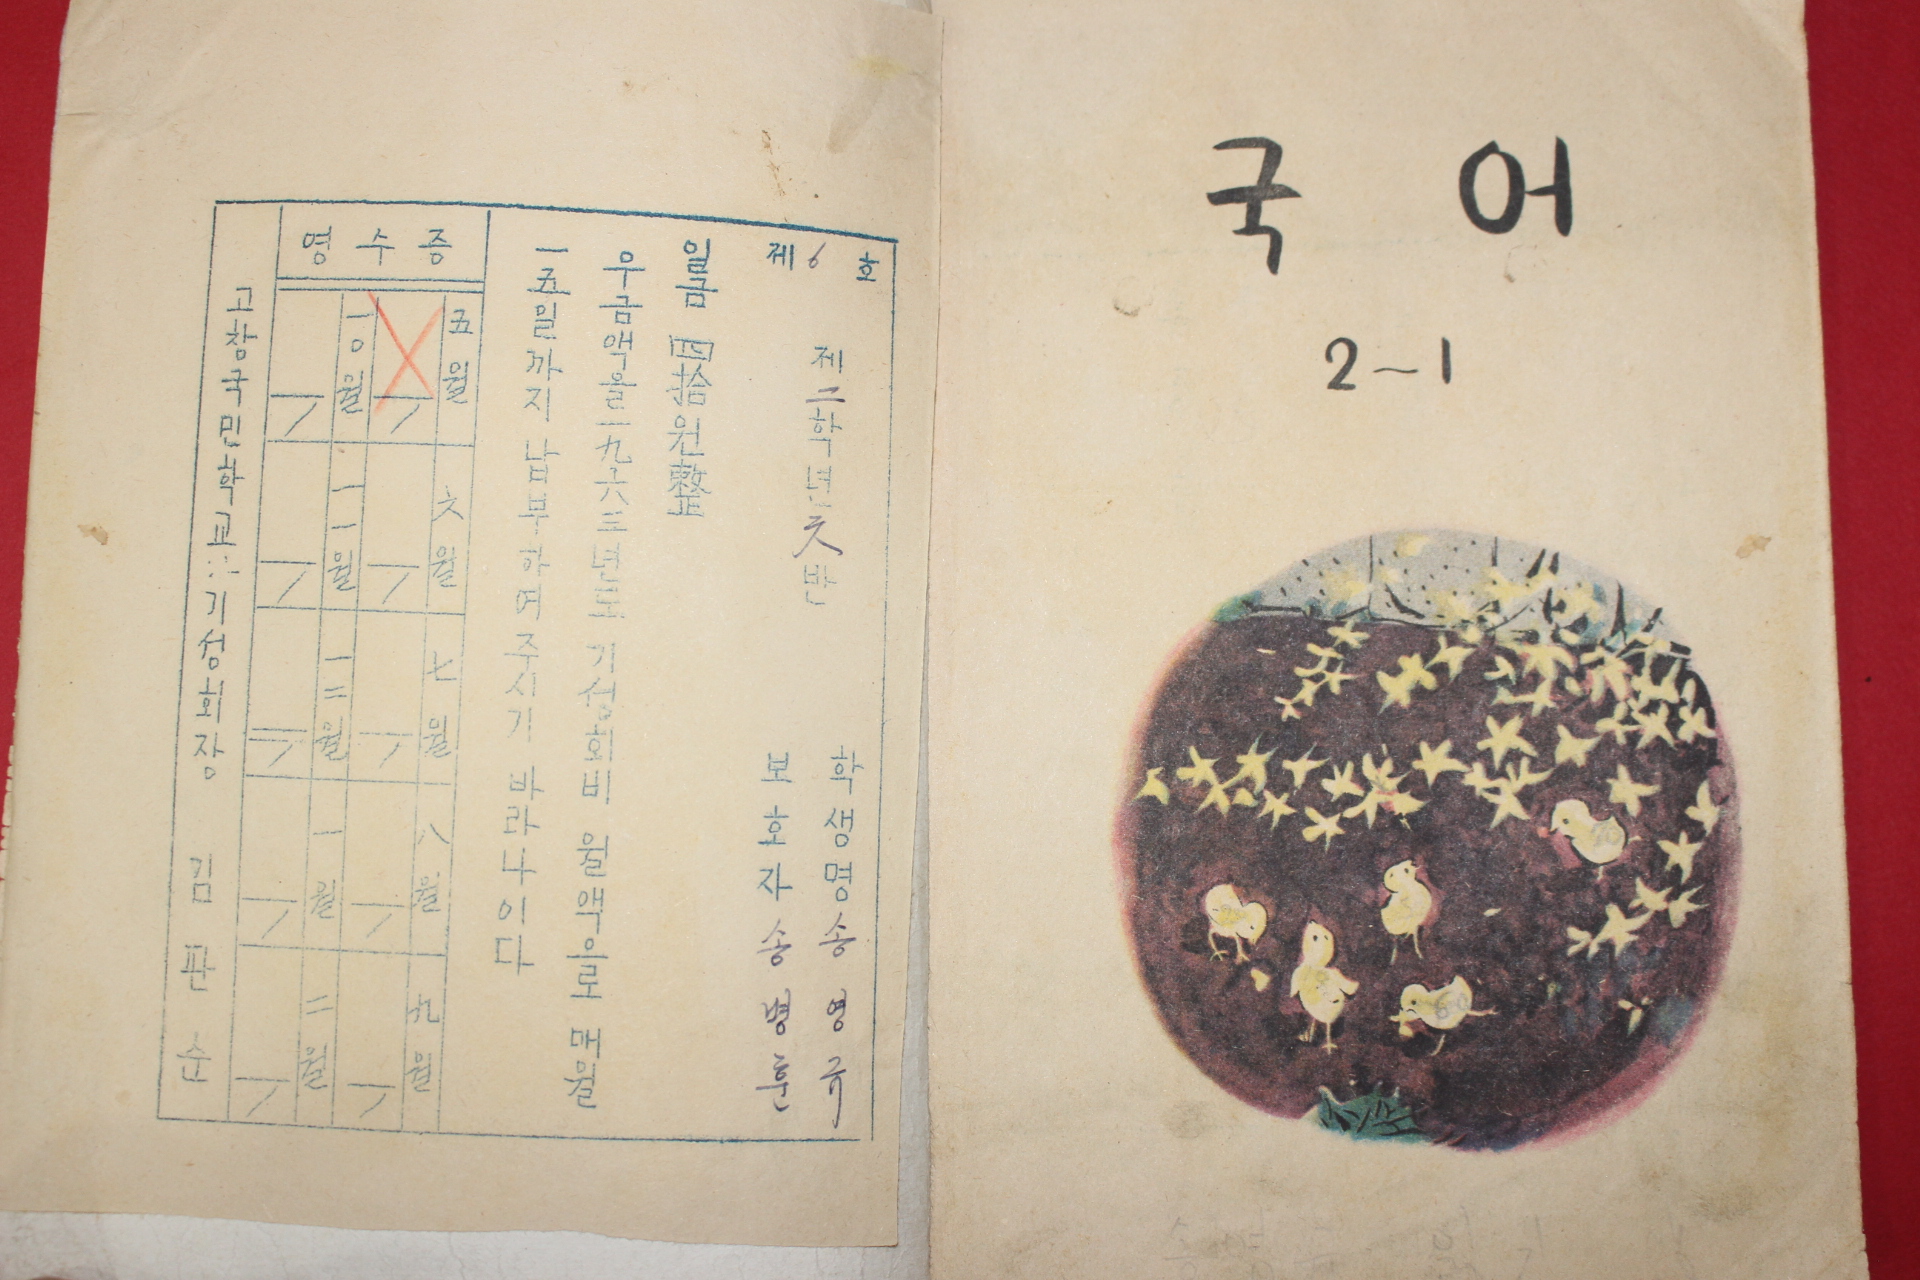 제6호
제二학년 天반
학생명 송영규
보호자 송병훈
일금 四拾원整
우금액을 一九六三년도 기성회비 월액으로 매월
一五일까지 납부하여 주시기 바라나이다
영수증
五월 六월 七월 八월 九월
一〇월 一一월 一二월 一월 二월
고창국민학교 기성회장 김판순
국어
2~1